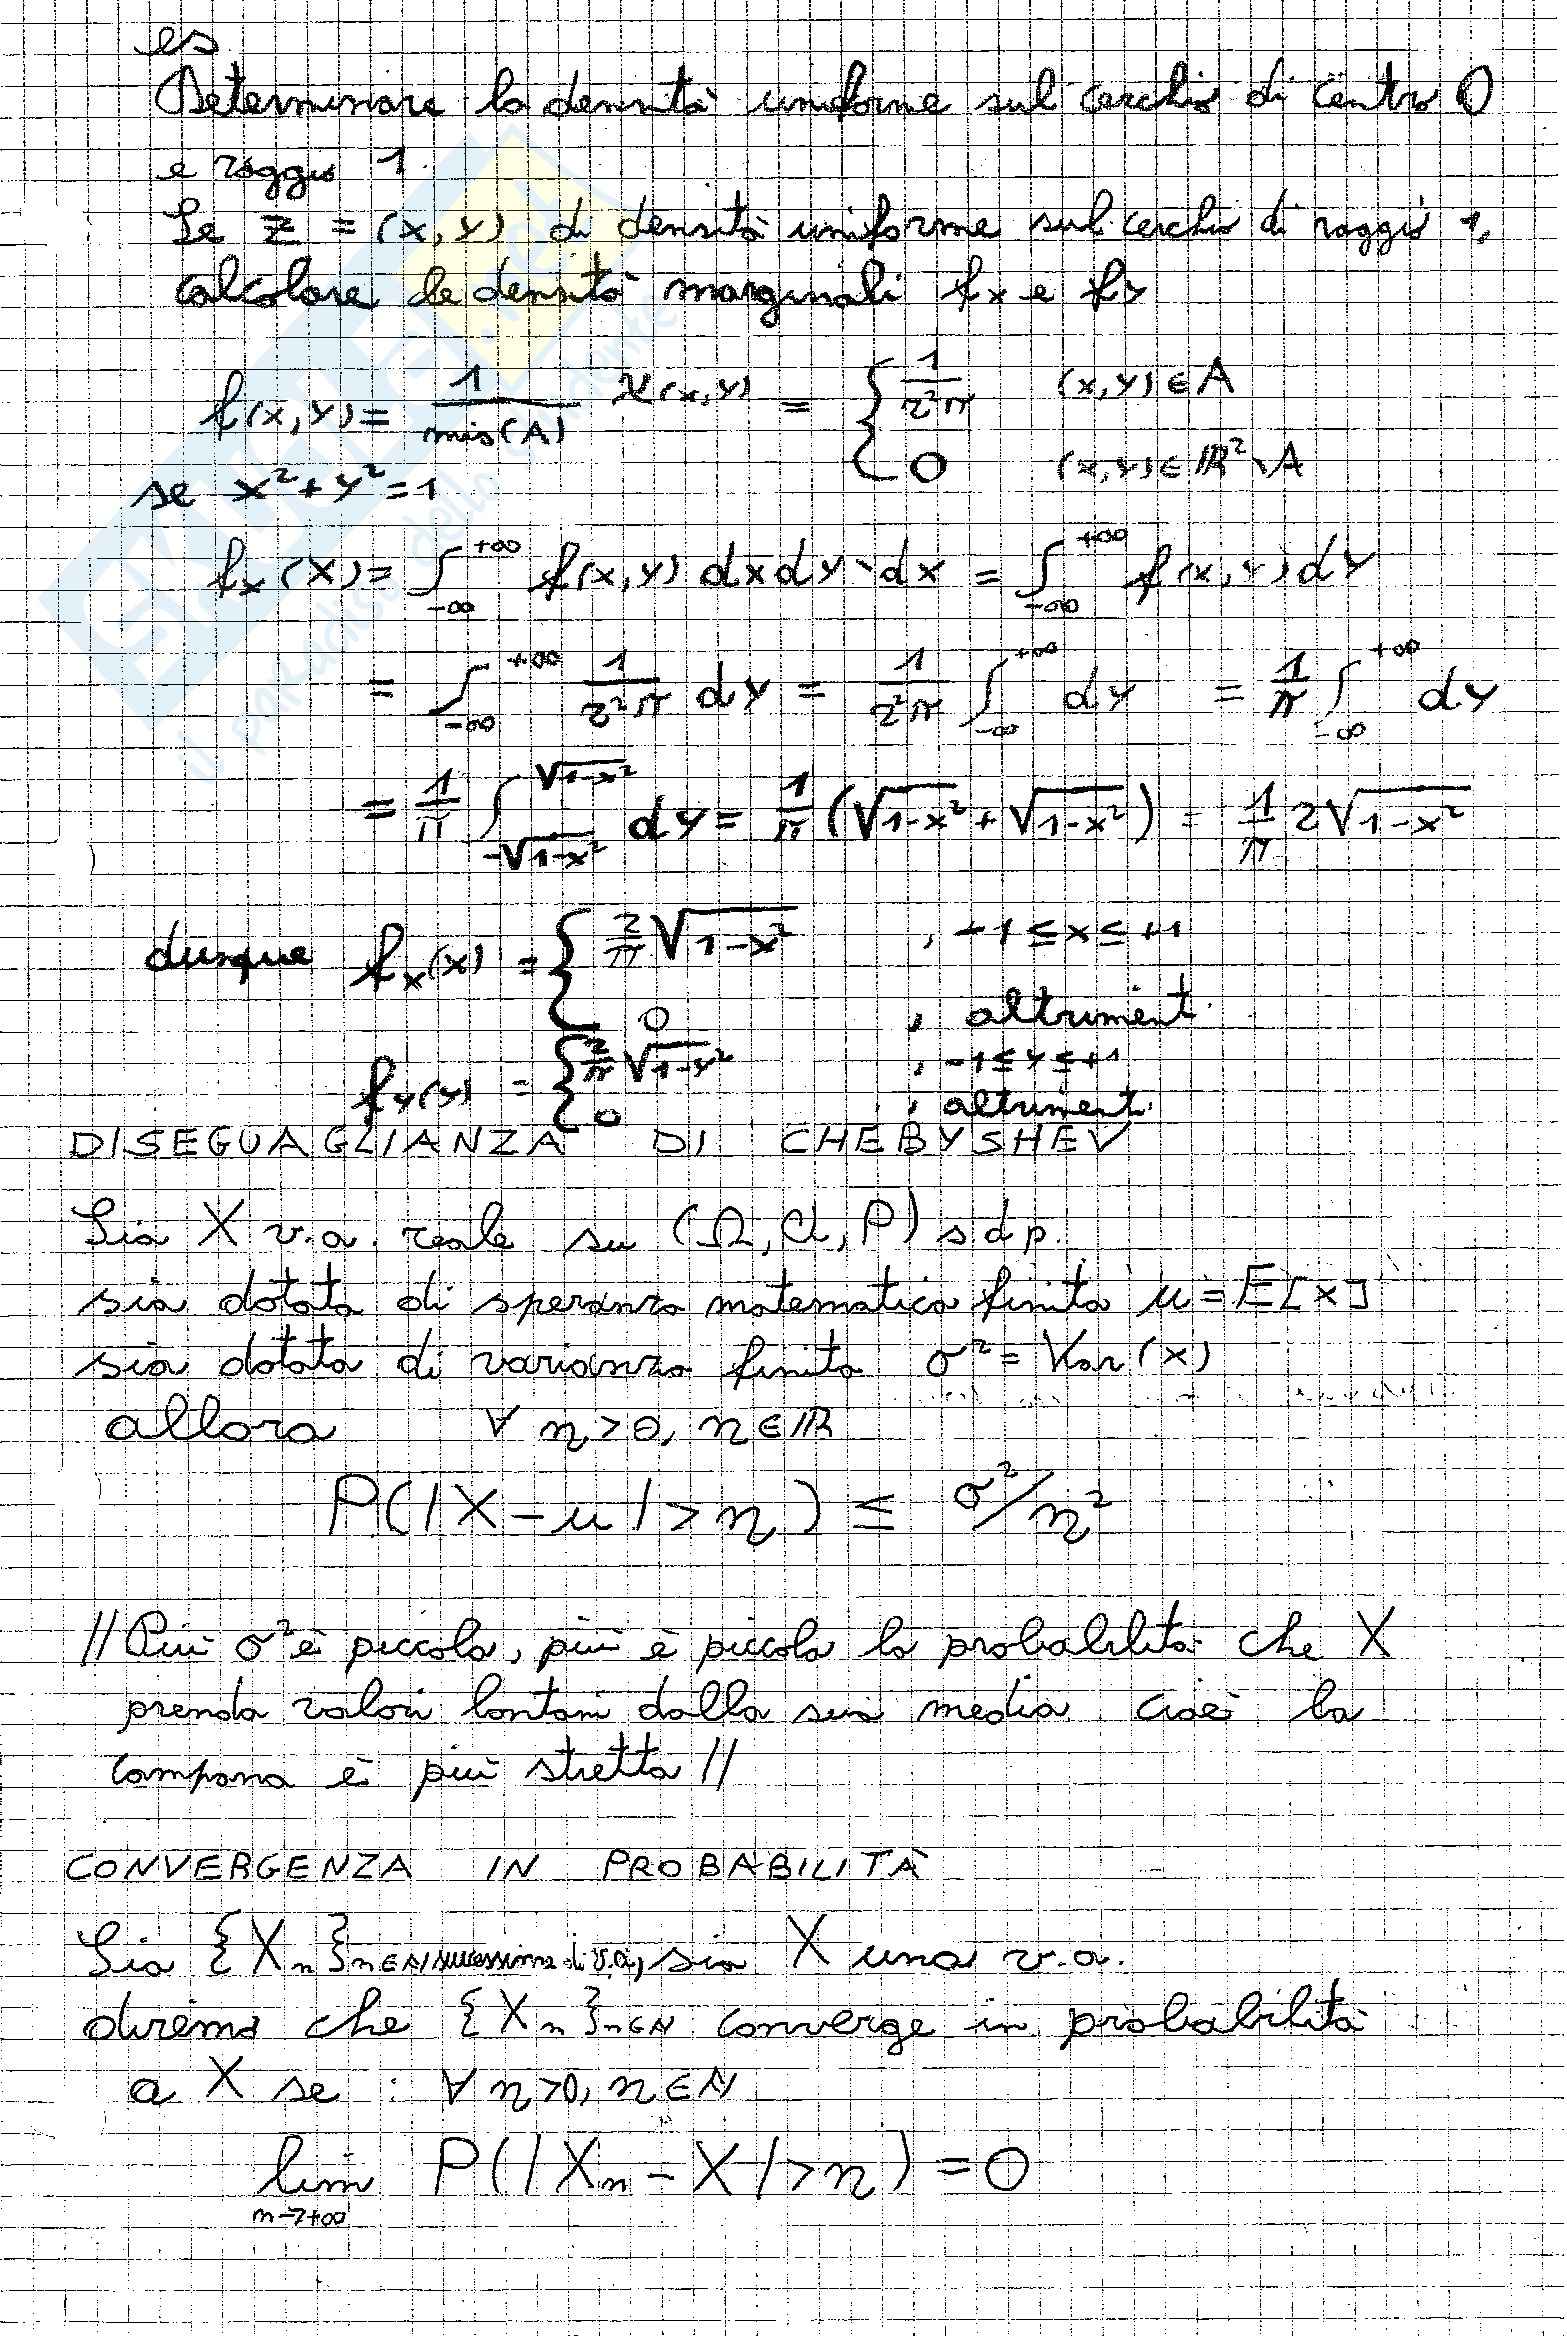 es
Determinare la densità uniforme sul cerchio di centro O
e raggio 1.
Se Z = (X, Y) di densità uniforme sul cerchio di raggio 1,
calcolare le densità marginali fₓ e fʏ
f(x,y) = 1/mis(A) χ(x,y) = { 1/r²π (x,y) ∈ A
0 (x,y) ∈ ℝ² \ A
se x²+y²=1
fₓ(x) = ∫_{-∞}^{+∞} f(x,y) dxdy · dx = ∫_{-∞}^{+∞} f(x,y) dy
= ∫_{-∞}^{+∞} 1/r²π dy = 1/r²π ∫_{-∞}^{+∞} dy = 1/π ∫_{-∞}^{+∞} dy
= 1/π ∫_{-√(1-x²)}^{√(1-x²)} dy = 1/π (√(1-x²) + √(1-x²)) = 1/π 2√(1-x²)
dunque fₓ(x) = { 2/π √(1-x²) , -1 ≤ x ≤ +1
0 , altrimenti
fʏ(y) = { 2/π √(1-y²) , -1 ≤ y ≤ +1
0 , altrimenti
DISEGUAGLIANZA DI CHEBYSHEV
Sia X v.a. reale su (Ω, a, P) sdp.
sia dotata di speranza matematica finita μ = E[x]
sia dotata di varianza finita σ² = Var(x)
allora ∀ η>0, η∈ℝ
P(|X-μ|>η) ≤ σ²/η²
// Più σ² è piccola, più è piccola la probabilità che X
prenda valori lontani dalla sua media cioè la
campana è più stretta //
CONVERGENZA IN PROBABILITÀ
Sia {Xₙ}n∈ℕ successione di v.a., sia X una v.a.
diremo che {Xₙ}n∈ℕ converge in probabilità
a X se : ∀ η>0, η∈ℕ
lim n→+∞ P(|Xₙ-X|>η) = 0